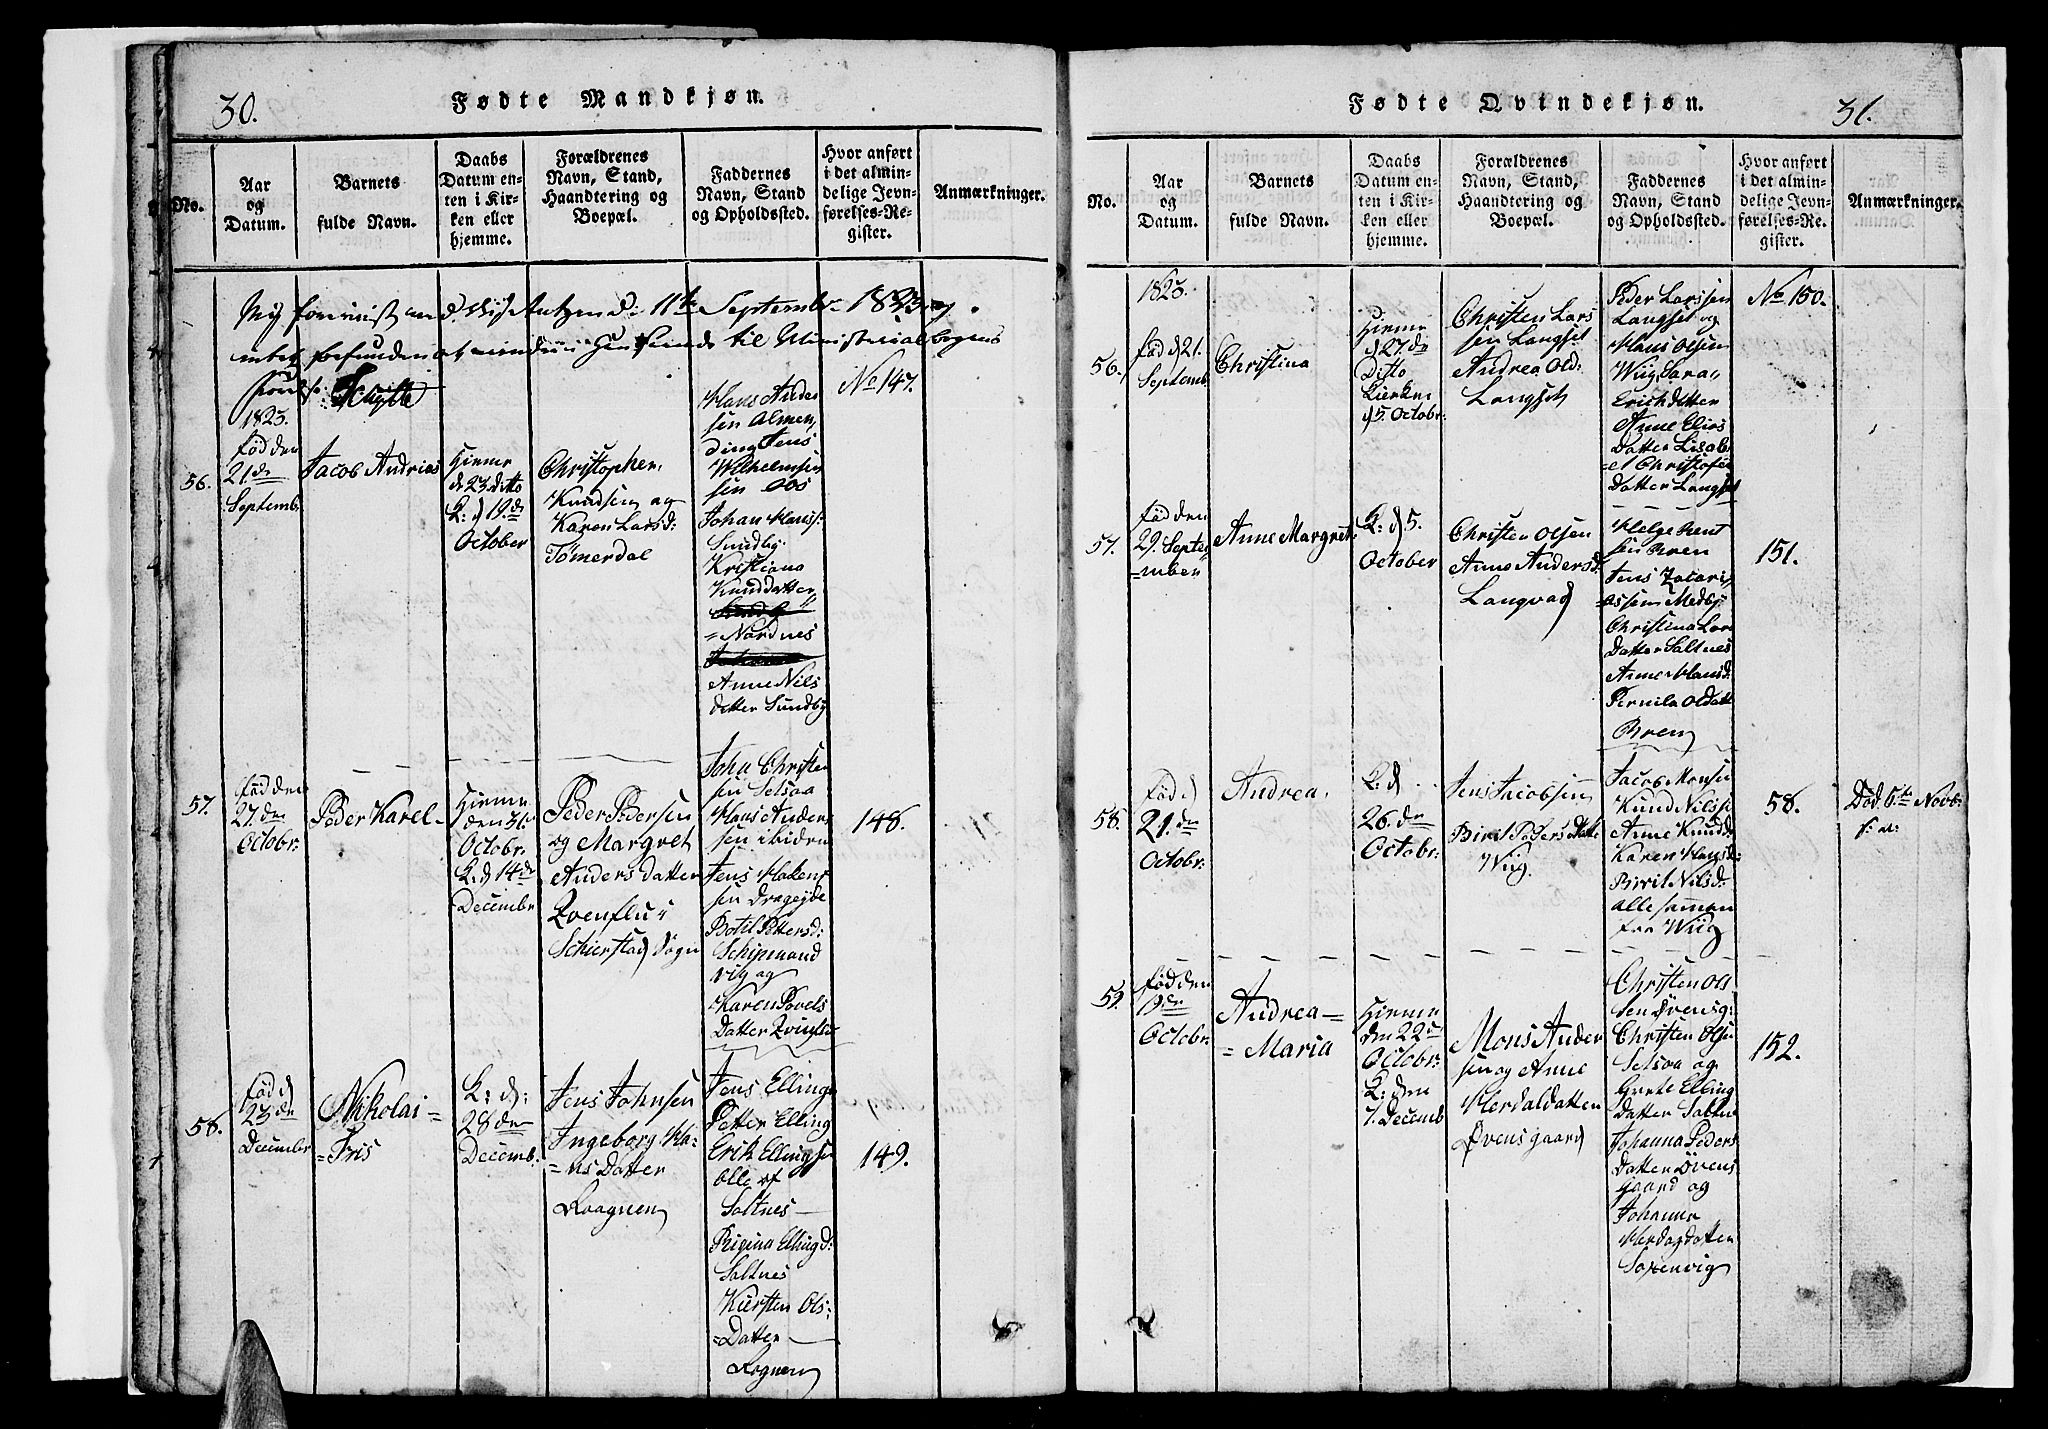 30.
Fødte Mandkjøn.
No.
Aar
og
Datum.
Barnets
fulde Navn.
Daabs
Datum en-
ten i Kir-
ken eller
hjemme.
Forældrenes
Navn, Stand,
Haandtering og
Boepæl.
Faddernes
Navn, Stand
og Opholdssted.
Hvor anført
i det almin-
delige Jevn-
førelses-Re-
gister.
Anmærkninger.
11te September 1823
til Ministerialbogens
1823.
56.
fød den
21de
Septemb:
Jacob Andrias
Hiemme
d 23 ditto
K: d 19de
October
Christopher
Knudsen og
Karen Larsd:
Tømerdal
Hans Ander
sen Almen
ding Jens
Wilhelmsen
Johan Hanss:
Sundby
Kristiana
Knuddatter
=Nordnes
Anne Nils
datter Sundby
No 147.
57.
fød den
27den
Octobr:
Peder Karel
Hiemme
den 31
Octobr:
K: d 14de
Decembr
Peder Pedersen
og Margret
Anders datter
Schierstad Sogn
John Christen
sen Setsaa
Hans Anders
sen ibidem
Jens Haken
sen Drageide
Botil Pettersd:
Schipmand
vig og
Karen Povels
Datter
148.
58.
fød d
23de
Decembr
Nikolai
=Fris
K: d:
28den
Decemb:
Jens Johnsen
Ingeborg Ha=
=ns Datter
Raagnen
Jens Ellings
Petter Elling
Erik Ellingsen
alle af
Saltnes
Regina Ellingd:
Saltnes
Kiersten Ols=
=Datter
Rognen
149.
Fødte Qvindekjøn.
31.
No.
Aar
og
Datum.
Barnets
fulde Navn.
Daabs
Datum en-
ten i Kir-
ken eller
hjemme.
Forældrenes
Navn, Stand,
Haandtering og
Boepæl.
Faddernes
Navn, Stand
og Opholdssted.
Hvor anført
i det almin-
delige Jevn-
førelses-Re-
gister.
Anmærkninger.
1823.
56.
fød d 21.
Septemb:
Christina
Hiemme
d 27de
Ditto
Kierken
d 5. Octobr:
Christen Lars
sen Langset
Andrea Old:
Langset
Peder Larssen
Langset og
Hans Olsen
Wiig, Sara
Erichdatter
Anne Elias
Datter Lisabe
=t Christofer
Datter Langset
No 150.
57.
fød den
29. Septe
=mber
Anne Margret:
K: d 5.
October
Christen Olsen
Anne Andersd:
Langvad
Helge Bent
sen Bren
Jens Zacari
assen Medby
Christina Lars
Datter Saltnes
Anne Hansd:
Pernila Oldatt
Bren
151.
58.
fød d
21.de
Octobr:
Andrea
K: d
26.de
Octobr:
Jens Jacobsen
Birel Peders datt
Wiig
Jacob Monsen
Knud Nilss
Anne Knudd:
Karen Hansd:
Birit Nilsd:
alle samen
fra Wiig
58.
Død 6te Novb:
59.
fød den
19de
Octobr:
Andrea=
=Maria
Hiemme
den 22de
Octobr:
K: den
7. Decemb
Mons Ander
sen og Anne
Herdaldatter
Øvensgaard
Christen Ols
sen Øvensg:
Christen Olsen
Setsaa og
Grete Elling
Datter Saltn
Johanna Peders
Datter Øvens
gaard og
Johanna
Herdagdatter
Saxenvig
152.